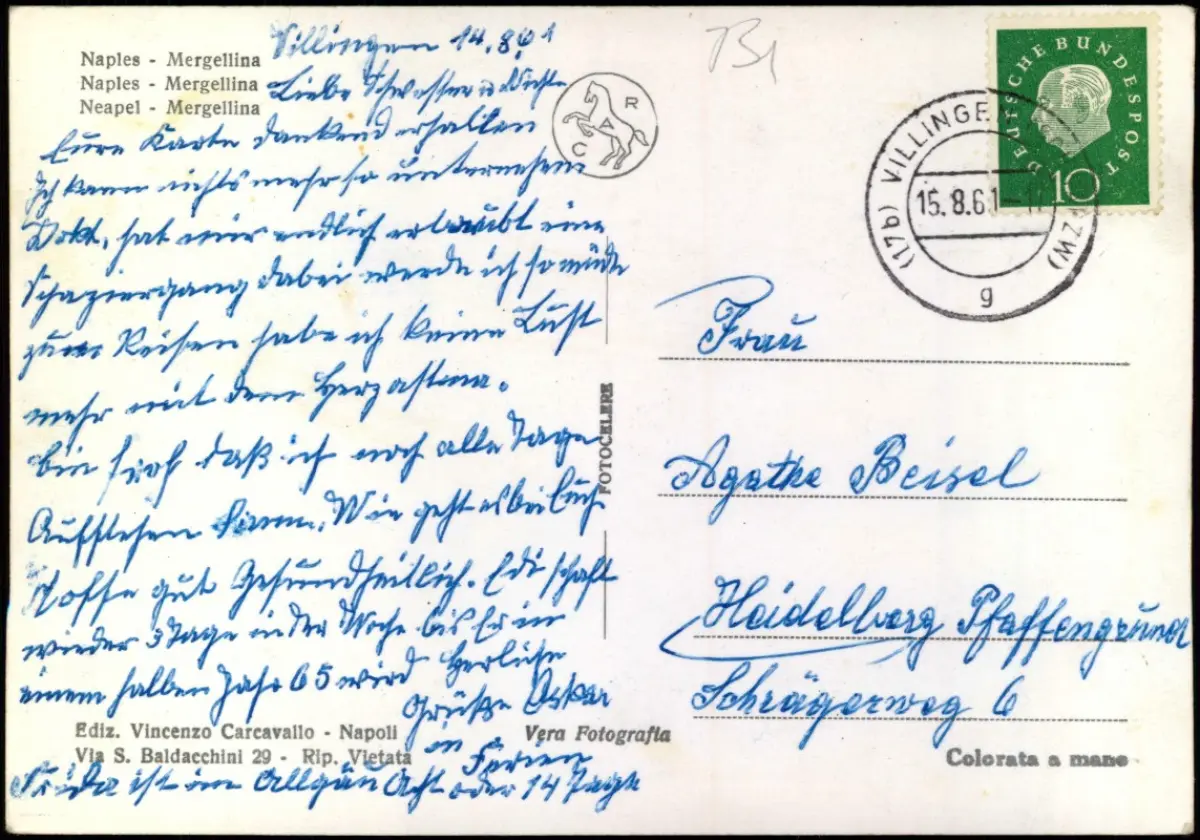 Naples - Mergellina
Naples - Mergellina
Neapel - Mergellina
Villingen 14.8.61
Liebe Schwester u. Nichte
Eure Karte dankend erhalten
Ich kann nichts mehr so unternehmen
Dokt. hat mir endlich erlaubt eine
Schaziergang dabei werde ich so müde
zum Reisen habe ich keine Lust
mehr mit dem Herzastma.
bin froh daß ich noch alle Tage
Aufstehen kann. Wie geht es bei Euch.
Hoffe gut Gesundheitlich. Edi schafft
wieder 3 Tage in der Woche bis Er in
einem halben Jahr 65 wird Herliche
Grüße Oskar
in Ferien
Frida ist im Allgäu Acht oder 14 Tage
Ediz. Vincenzo Carcavallo - Napoli
Via S. Baldacchini 29 - Rip. Vietata
Vera Fotografia
FOTOCELERE
R
A
C
DEUTSCHE BUNDESPOST
10
(17b) VILLINGEN
15.8.61
ZW)
g
Frau
Agathe Beisel
Heidelberg Pfaffengrund
Schrägerweg 6
Colorata a mano